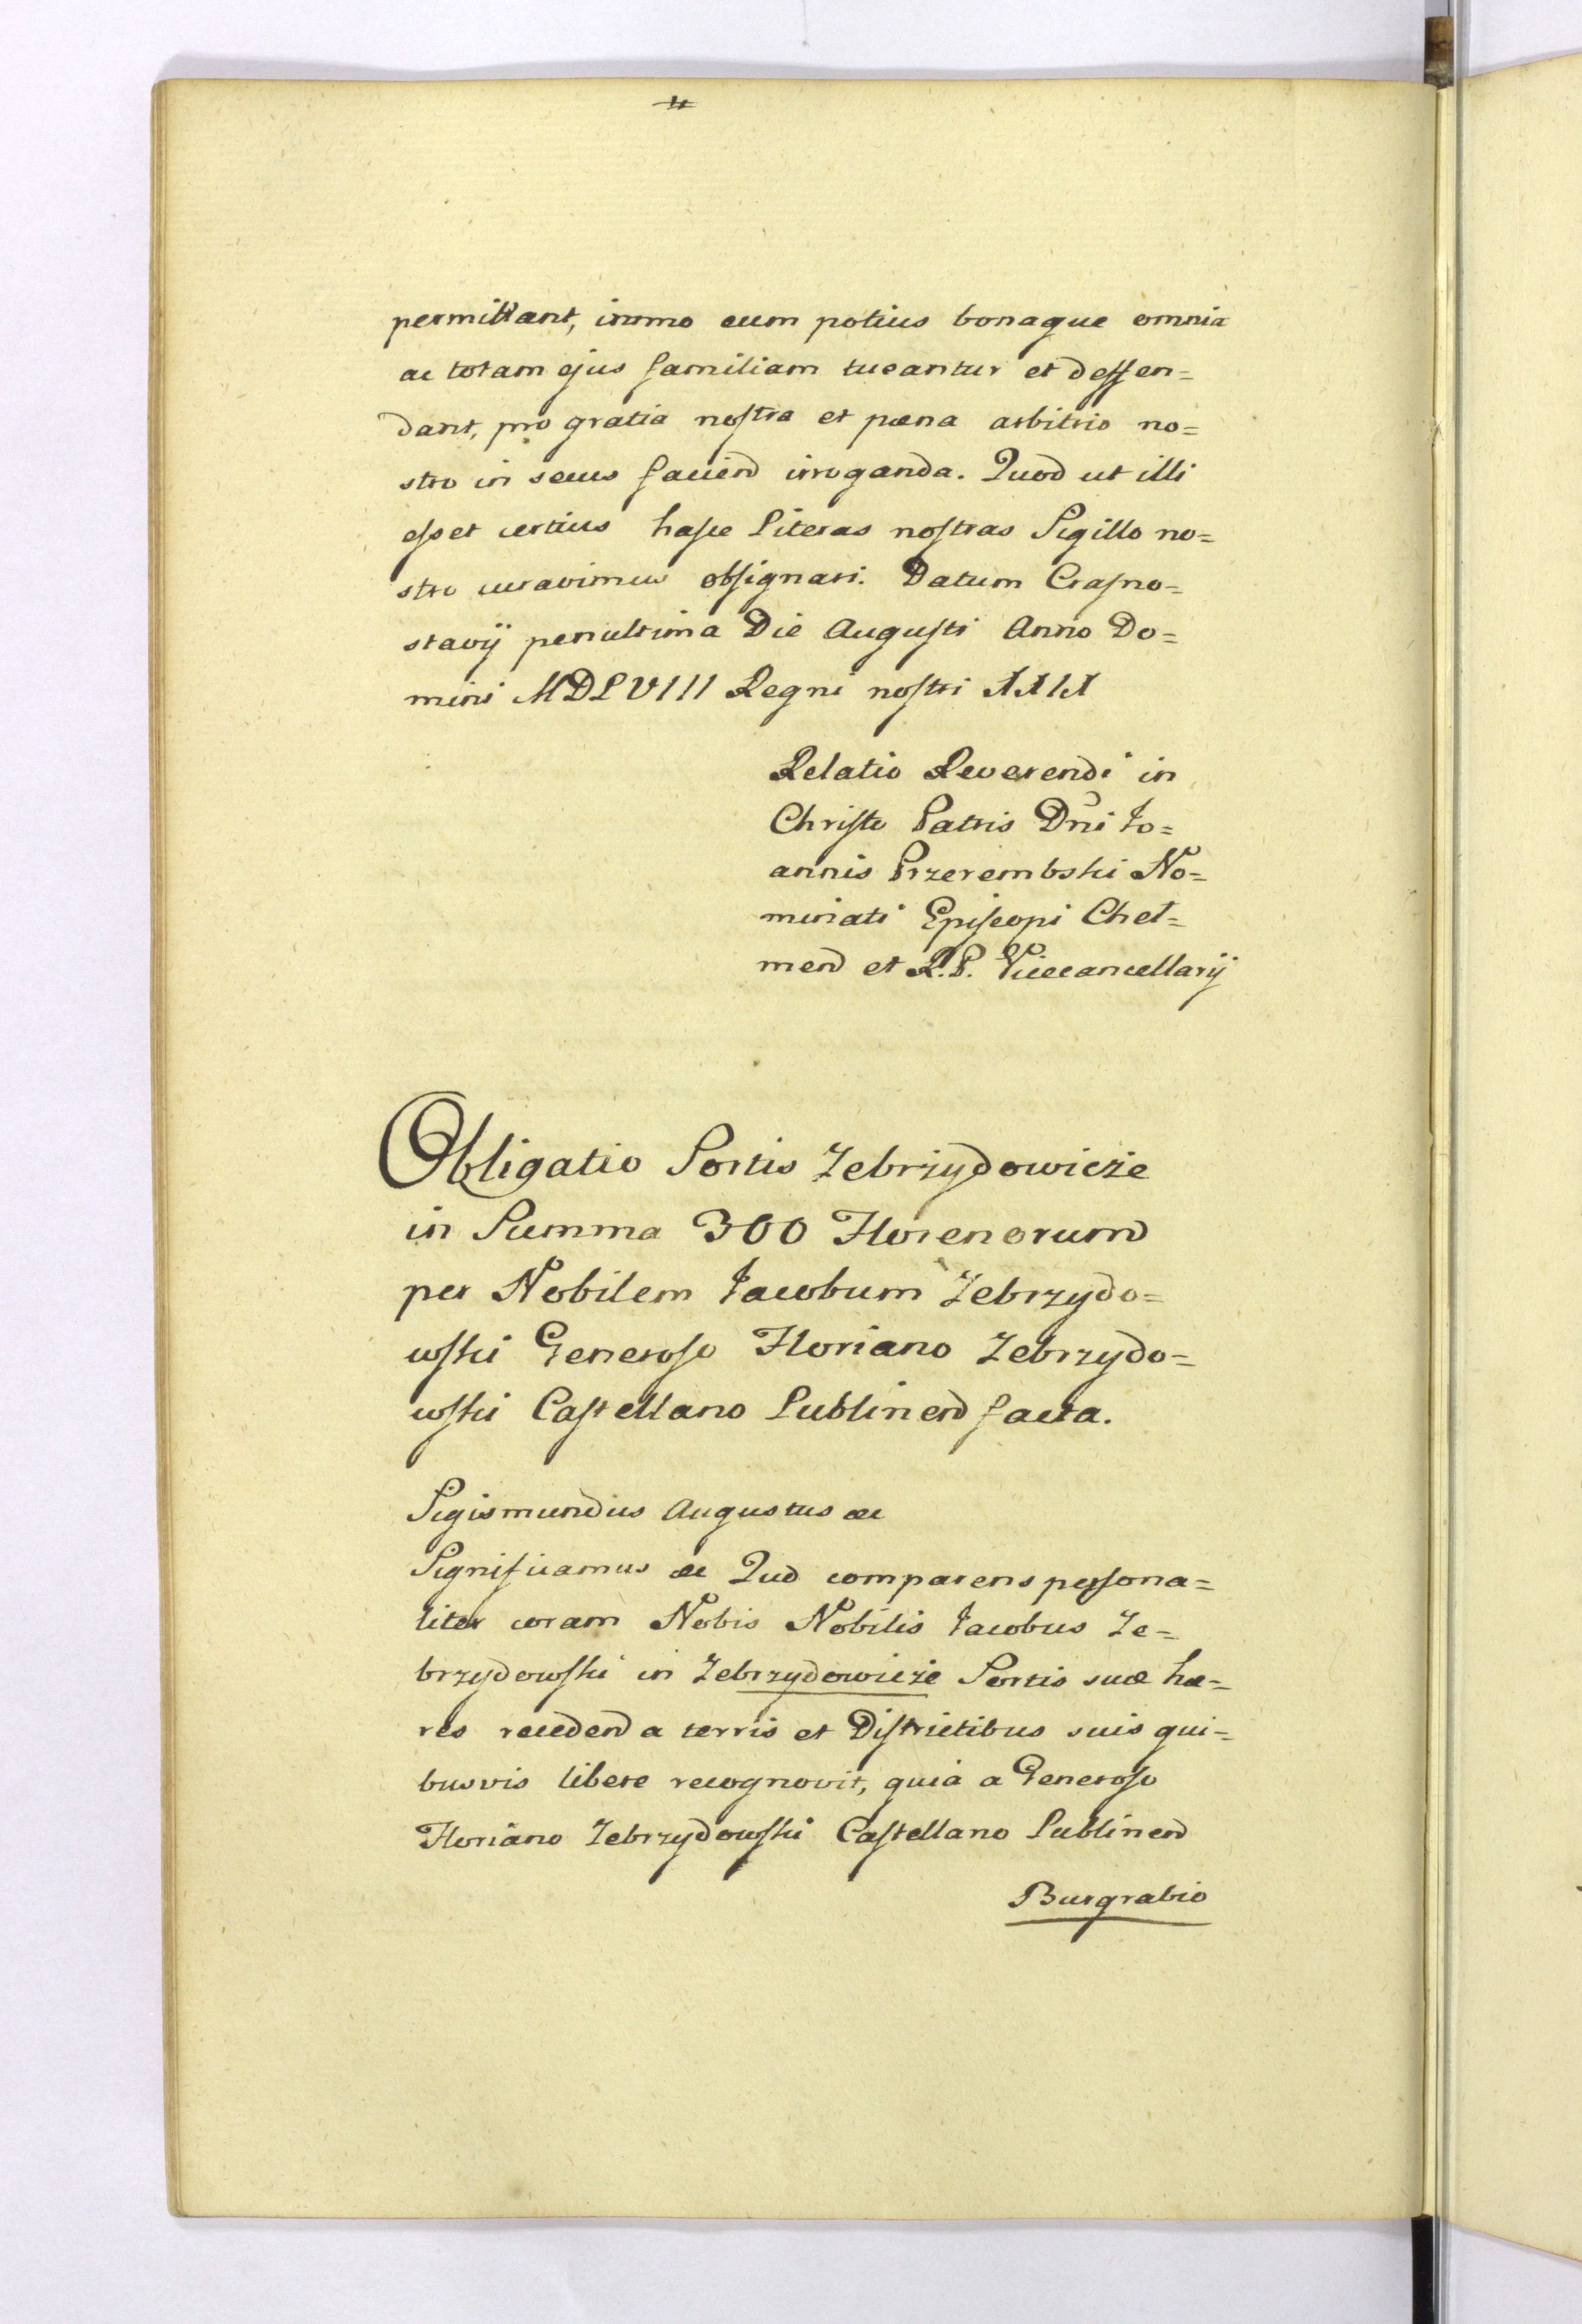 permittant, immo eum potius bonaque omnia
ac totam ejus familiam tueantur et deffen=
dant, pro gratia nostra et pœna arbitrio no=
stro in secus faciend irroganda. Quod ut illi
esset certius hasce Literas nostras Sigillo no=
stro curavimus obsignari. Datum Crasno=
stavÿ penultima Die Augusti Anno Do=
mini MDLVIII Regni nostri XXIX
Relatio Reverendi in
Christo Patris Dni Jo=
annis Przerembski No=
minati Episcopi Cheł=
mend et R.P. Vicecancellarÿ
Obligatio Sortis Zebrżydowicże
in Summa 300 Florenorum
per Nobilem Jacobum Zebrzydo=
wski Generoso Floriano Zebrzydo=
wski Castellano Lublinend facta.
Sigismundus Augustus &c
Significamus &c Quod comparens persona=
liter coram Nobis Nobilis Jacobus Ze=
brzydowski in Zebrzydowicże Sortis suæ hæ=
res recedend a terris et Districtibus suis qui=
busvis libere recognovit, quia a Generoso
Floriano Zebrzydowski Castellano Lublinend
Burgrabio